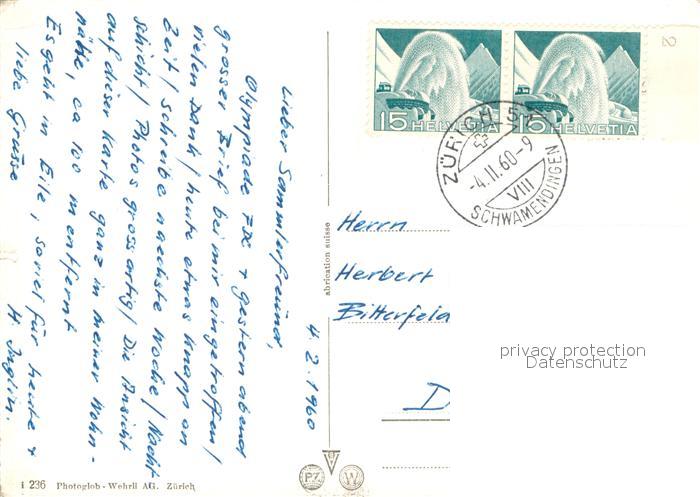 4.2.1960
Lieber Sammlerfreund,
Olympiade FDC + gestern abend
grosser Brief bei mir eingetroffen /
vielen Dank / heute etwas knapp an
Zeit / schreibe naechste Woche / Nacht
schicht / Photos grossartig / Die Ansicht
auf dieser Karte ganz in meiner Wohn-
nähe, ca 100 m entfernt
Es geht in Eile, soviel für heute +
liebe Grüsse
15 HELVETIA
15 HELVETIA
2
ZÜRICH 51
-4.II.60-9
VIII
SCHWAMENDINGEN
Herrn
Herbert
Bitterfeld
D
abrication suisse
privacy protection
Datenschutz
PZ
W
1 236 Photoglob-Wehrli AG. Zürich